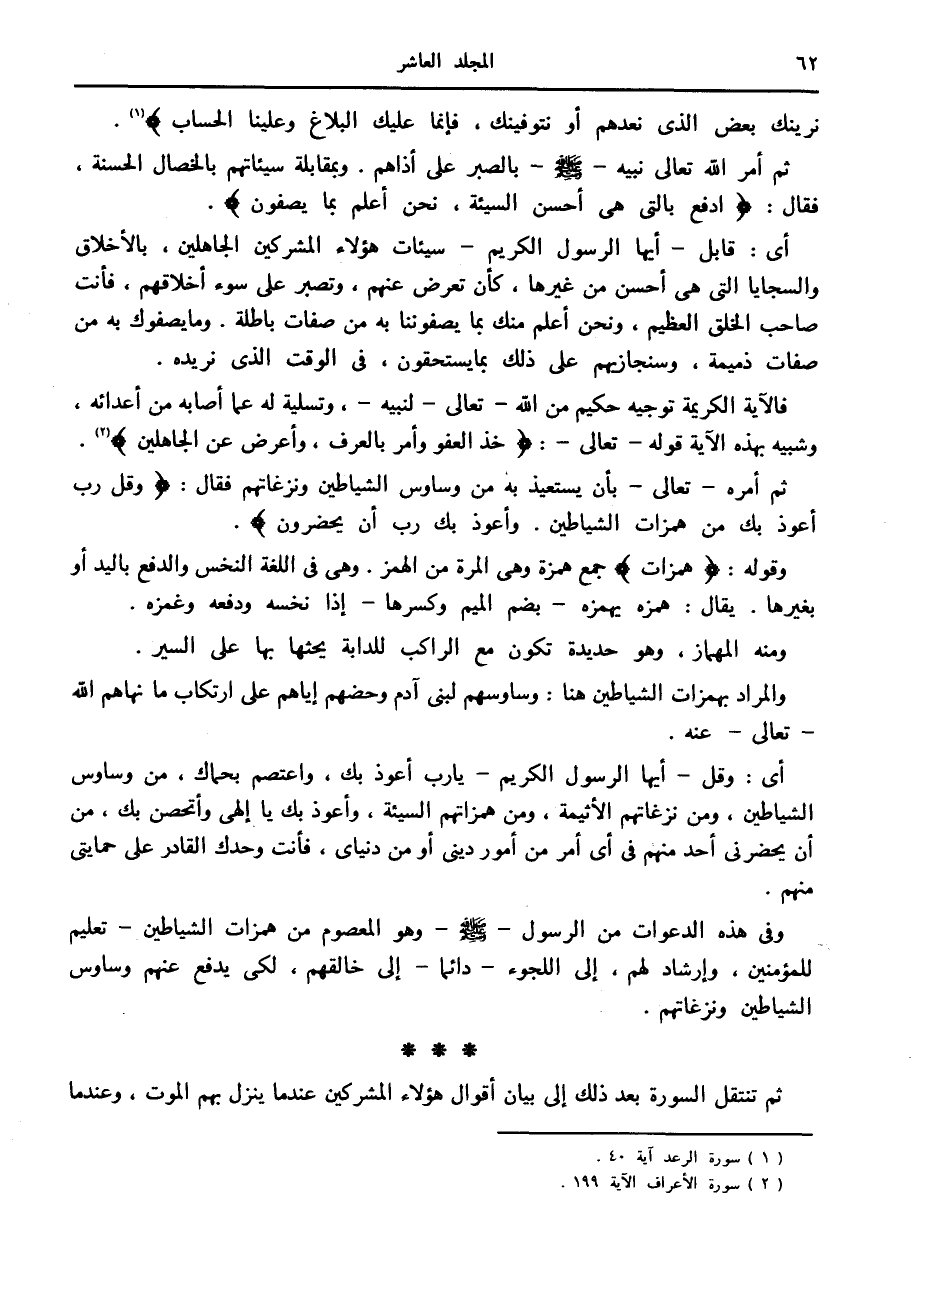 ٦٢
المجلد العاشر
نرينك بعض الذى نعدهم أو نتوفينك ، فإنما عليك البلاغ وعلينا الحساب ﴾(١) .
ثم أمر الله تعالى نبيه – ﷺ – بالصبر على أذاهم . وبمقابلة سيئاتهم بالخصال الحسنة ،
فقال : ﴿ ادفع بالتى هى أحسن السيئة ، نحن أعلم بما يصفون ﴾ .
أى : قابل – أيها الرسول الكريم – سيئات هؤلاء المشركين الجاهلين ، بالأخلاق
والسجايا التى هى أحسن من غيرها ، كأن تعرض عنهم ، وتصبر على سوء أخلاقهم ، فأنت
صاحب الخلق العظيم ، ونحن أعلم منك بما يصفوننا به من صفات باطلة . ومايصفوك به من
صفات ذميمة ، وسنجازيهم على ذلك بمايستحقون ، فى الوقت الذى نريده .
فالآية الكريمة توجيه حكيم من الله – تعالى – لنبيه – ، وتسلية له عما أصابه من أعدائه ،
وشبيه بهذه الآية قوله – تعالى – : ﴿ خذ العفو وأمر بالعرف ، وأعرض عن الجاهلين ﴾(٢) .
ثم أمره – تعالى – بأن يستعيذ به من وساوس الشياطين ونزغاتهم فقال : ﴿ وقل رب
أعوذ بك من همزات الشياطين . وأعوذ بك رب أن يحضرون ﴾ .
وقوله : ﴿ همزات ﴾ جمع همزة وهى المرة من الهمز . وهى فى اللغة النخس والدفع باليد أو
بغيرها . يقال : همزه يهمزه – بضم الميم وكسرها – إذا نخسه ودفعه وغمزه .
ومنه المهماز ، وهو حديدة تكون مع الراكب للدابة يحثها بها على السير .
والمراد بهمزات الشياطين هنا : وساوسهم لبنى آدم وحضهم إياهم على ارتكاب ما نهاهم الله
– تعالى – عنه .
أى : وقل – أيها الرسول الكريم – يارب أعوذ بك ، واعتصم بحماك ، من وساوس
الشياطين ، ومن نزغاتهم الأثيمة ، ومن همزاتهم السيئة ، وأعوذ بك يا إلهى وأتحصن بك ، من
أن يحضرنى أحد منهم فى أى أمر من أمور دينى أو من دنياى ، فأنت وحدك القادر على حمايتى
منهم .
وفى هذه الدعوات من الرسول – ﷺ – وهو المعصوم من همزات الشياطين – تعليم
للمؤمنين ، وإرشاد لهم ، إلى اللجوء – دائما – إلى خالقهم ، لكى يدفع عنهم وساوس
الشياطين ونزغاتهم .
* * *
ثم تنتقل السورة بعد ذلك إلى بيان أقوال هؤلاء المشركين عندما ينزل بهم الموت ، وعندما
( ١ ) سورة الرعد آية ٤٠ .
( ٢ ) سورة الأعراف الآية ١٩٩ .